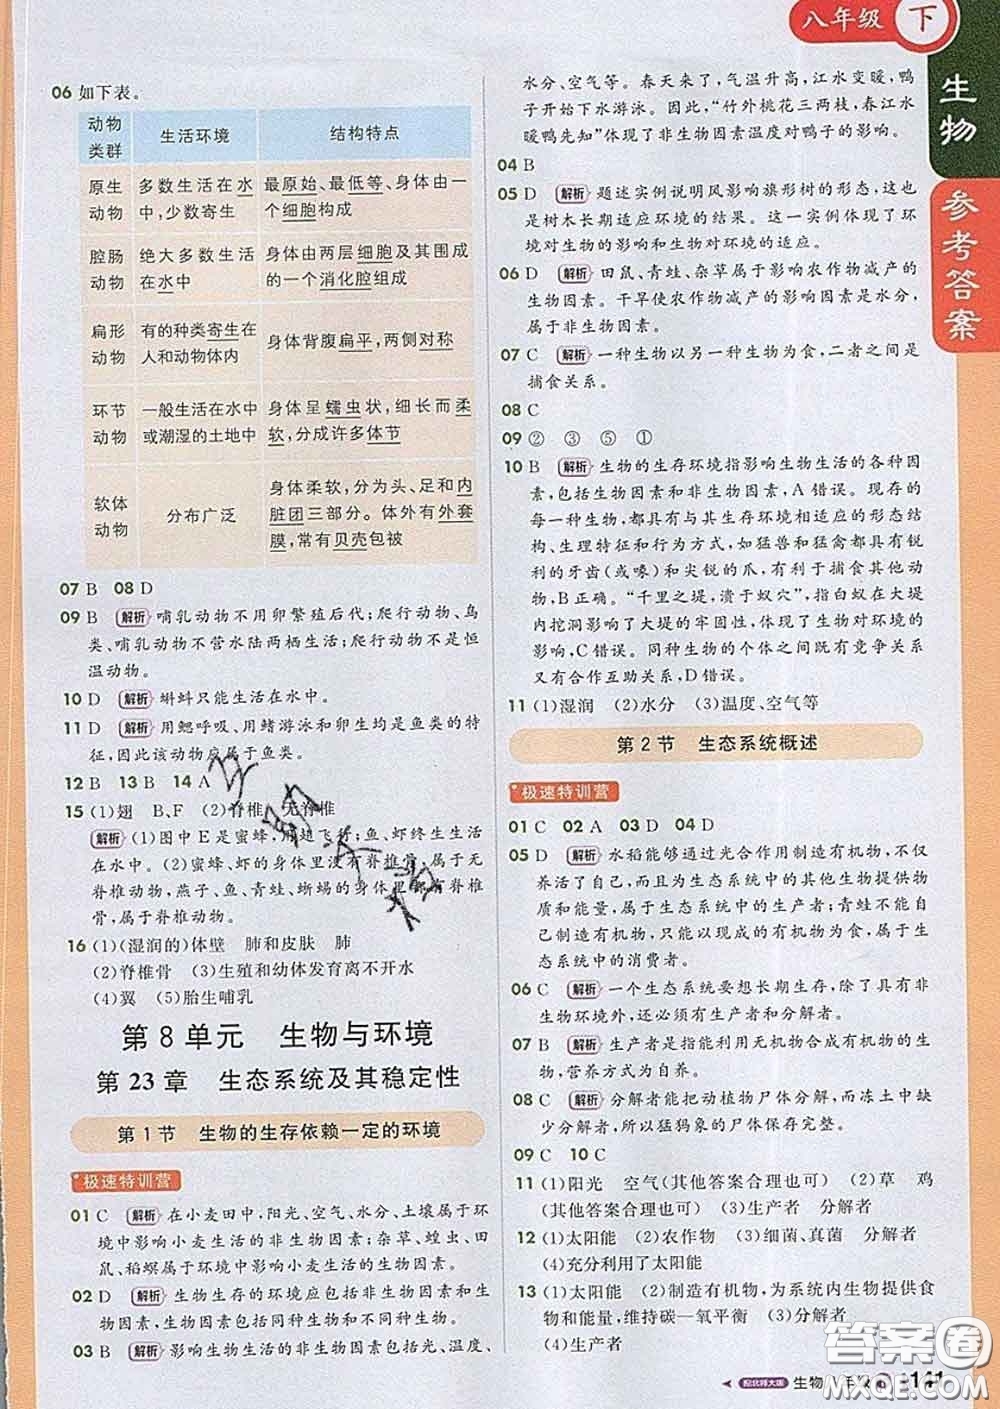 八年级 下
生物
参考答案
06 如下表。
动物类群 生活环境 结构特点
原生 多数生活在水 最原始、最低等、身体由一
动物 中,少数寄生 个细胞构成
腔肠 绝大多数生活 身体由两层细胞及其围成
动物 在水中 的一个消化腔组成
扁形 有的种类寄生在 身体背腹扁平,两侧对称
动物 人和动物体内
环节 一般生活在水中 身体呈蠕虫状,细长而柔
动物 或潮湿的土地中 软,分成许多体节
软体 分布广泛 身体柔软,分为头、足和内
动物 脏团三部分。体外有外套
膜,常有贝壳包被
07 B 08 D
09 B 解析 哺乳动物不用卵繁殖后代;爬行动物、鸟
类、哺乳动物不营水陆两栖生活;爬行动物不是恒
温动物。
10 D 解析 蝌蚪只能生活在水中。
11 D 解析 用鳃呼吸、用鳍游泳和卵生均是鱼类的特
征,因此该动物应属于鱼类。
12 B 13 B 14 A
15 (1)翅 B、F (2)脊椎 无脊椎
解析 (1)图中E是蜜蜂,用翅飞行;鱼、虾终生生活
在水中。(2)蜜蜂、虾的身体里没有脊椎骨,属于无
脊椎动物,燕子、鱼、青蛙、蜥蜴的身体里都有脊椎
骨,属于脊椎动物。
16 (1)(湿润的)体壁 肺和皮肤 肺
(2)脊椎骨 (3)生殖和幼体发育离不开水
(4)翼 (5)胎生哺乳
第8单元 生物与环境
第23章 生态系统及其稳定性
第1节 生物的生存依赖一定的环境
极速特训营
01 C 解析 在小麦田中,阳光、空气、水分、土壤属于环
境中影响小麦生活的非生物因素;杂草、蝗虫、田
鼠、稻螟属于环境中影响小麦生活的生物因素。
02 D 解析 生物生存的环境应包括非生物因素和生物
因素,生物因素包括同种生物和不同种生物。
03 B 解析 影响生物生活的非生物因素包括光、温度、
水分、空气等。春天来了,气温升高,江水变暖,鸭
子开始下水游泳。因此,“竹外桃花三两枝,春江水
暖鸭先知”体现了非生物因素温度对鸭子的影响。
04 B
05 D 解析 题述实例说明风影响旗形树的形态,这也
是树木长期适应环境的结果。这一实例体现了环
境对生物的影响和生物对环境的适应。
06 D 解析 田鼠、青蛙、杂草属于影响农作物减产的
生物因素。干旱使农作物减产的环境因素是水分,
属于非生物因素。
07 C 解析 一种生物以另一种生物为食,二者之间是
捕食关系。
08 C
09 ② ③ ⑤ ①
10 B 解析 生物的生存环境指影响生物生活的各种因
素,包括生物因素和非生物因素,A错误。现存的
每一种生物,都具有与其生存环境相适应的形态结
构、生理特征和行为方式,如猛兽和猛禽都具有锐
利的牙齿(或喙)和尖锐的爪,有利于捕食其他动
物,B正确。“千里之堤,溃于蚁穴”,指白蚁在大堤
内挖洞影响了大堤的牢固性,体现了生物对环境的
影响,C错误。同种生物的个体之间既有竞争关系
又有合作互助关系,D错误。
11 (1)湿润 (2)水分 (3)温度、空气等
第2节 生态系统概述
极速特训营
01 C 02 A 03 D 04 D
05 D 解析 水稻能够通过光合作用制造有机物,不仅
养活了自己,而且为生态系统中的其他生物提供物
质和能量,属于生态系统中的生产者;青蛙不能自
己制造有机物,只能以现成的有机物为食,属于生态
系统中的消费者。
06 C 解析 一个生态系统要想长期生存,除了具有非
生物环境外,还必须有生产者和分解者。
07 B 解析 生产者是指能利用无机物合成有机物的生
物,营养方式为自养。
08 C 解析 分解者能把动植物尸体分解。而冻土中缺
少分解者,因此猛犸象的尸体保存完整。
09 C 10 C
11 (1)阳光 空气(其他答案合理也可) (2)草 鸡
(其他答案合理也可) (3)生产者 分解者
12 (1)太阳能 (2)农作物 (3)细菌、真菌 分解者
(4)充分利用了太阳能
13 (1)太阳能 (2)制造有机物,为系统内生物提供食
物和能量,维持碳—氧平衡 (3)分解者
(4)生产者
配北师大版 生物 八年级 141
答案圈
MXQE.COM